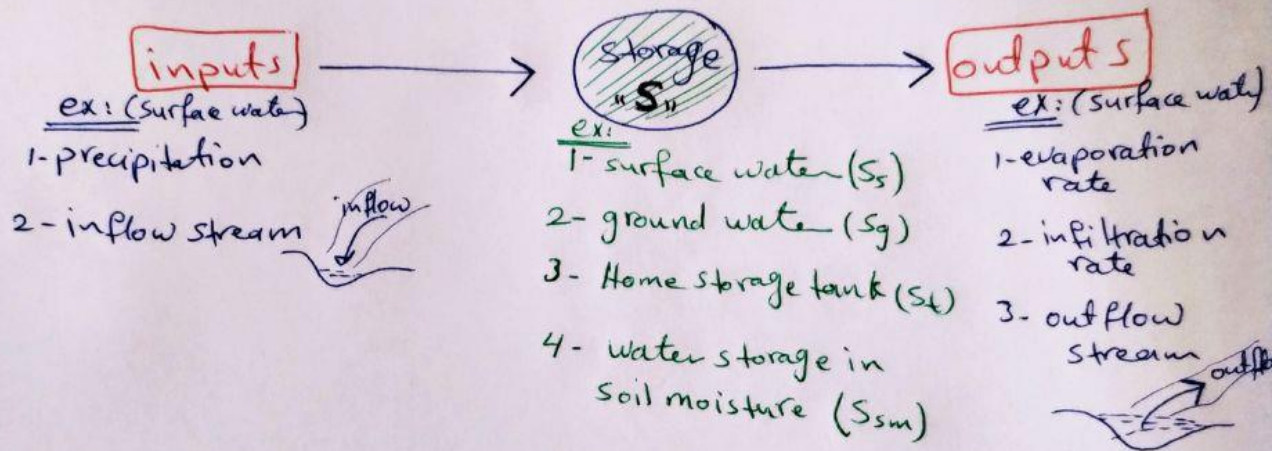 inputs
ex: (surfae water)
1- precipitation
2- inflow stream
inflow
storage
"S"
ex:
1- surface water (Ss)
2- ground water (Sg)
3- Home storage tank (St)
4- water storage in
soil moisture (Ssm)
outputs
ex: (surface wate)
1- evaporation
rate
2- infiltration
rate
3- outflow
stream
outflo